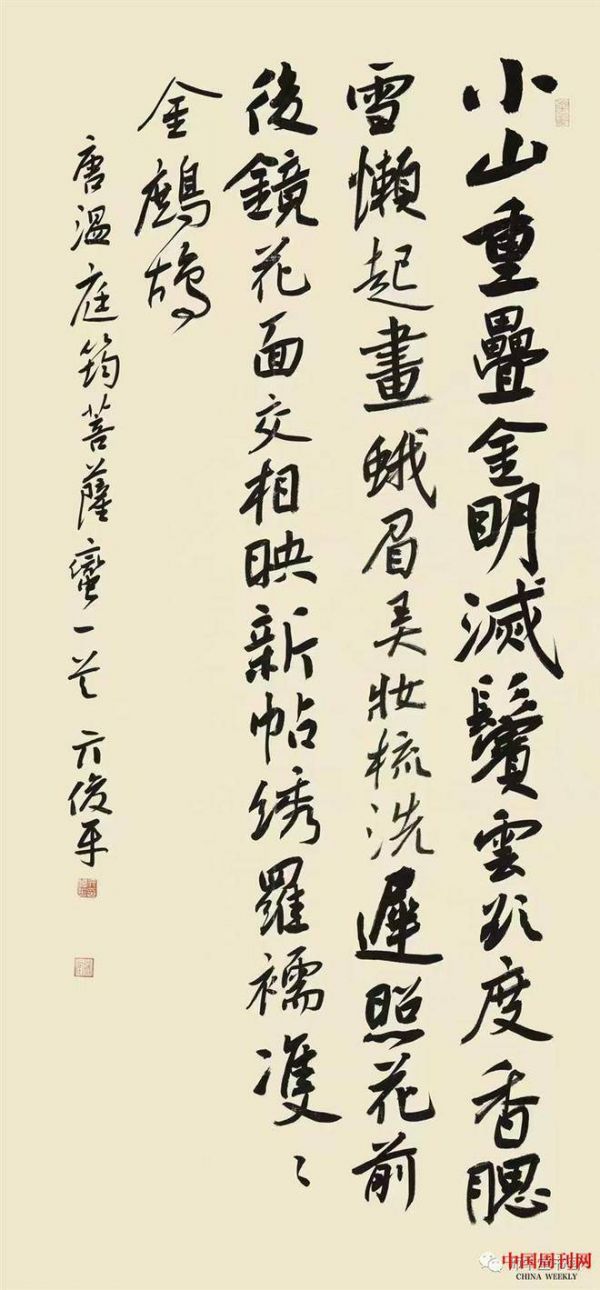 小山重疊金明滅鬢雲欲度香腮
雪懶起畫蛾眉美妝梳洗遲照花前
後鏡花面交相映新帖綉羅襦雙〻
金鷓鴣
唐溫庭筠菩薩蠻一首 亓俊平
中国周刊网
CHINA WEEKLY